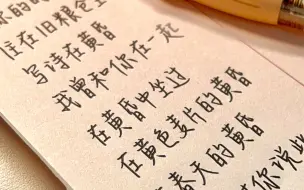 住在旧粮仓里
写诗在黄昏
我曾和你在一起
在黄昏中坐过
在黄色麦片的黄昏
春天的黄昏
你说